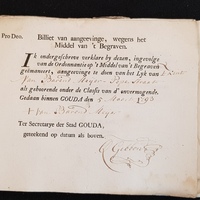 Pro Deo. Billiet van aangeevinge, wegens het
Middel van 't Begraven.
Ik ondergeschreve verklare by dezen, ingevolge
van de Ordonnantie op 't Middel van 't Begraven
geëmaneert, aangeevinge te doen van het Lyk van
Jan Barend
als gehoorende onder de Classis van d' onvermogende.
Gedaan binnen GOUDA den 5
Jan Barend
Ter Secretarye der Stad GOUDA,
geteekend op datum als boven.